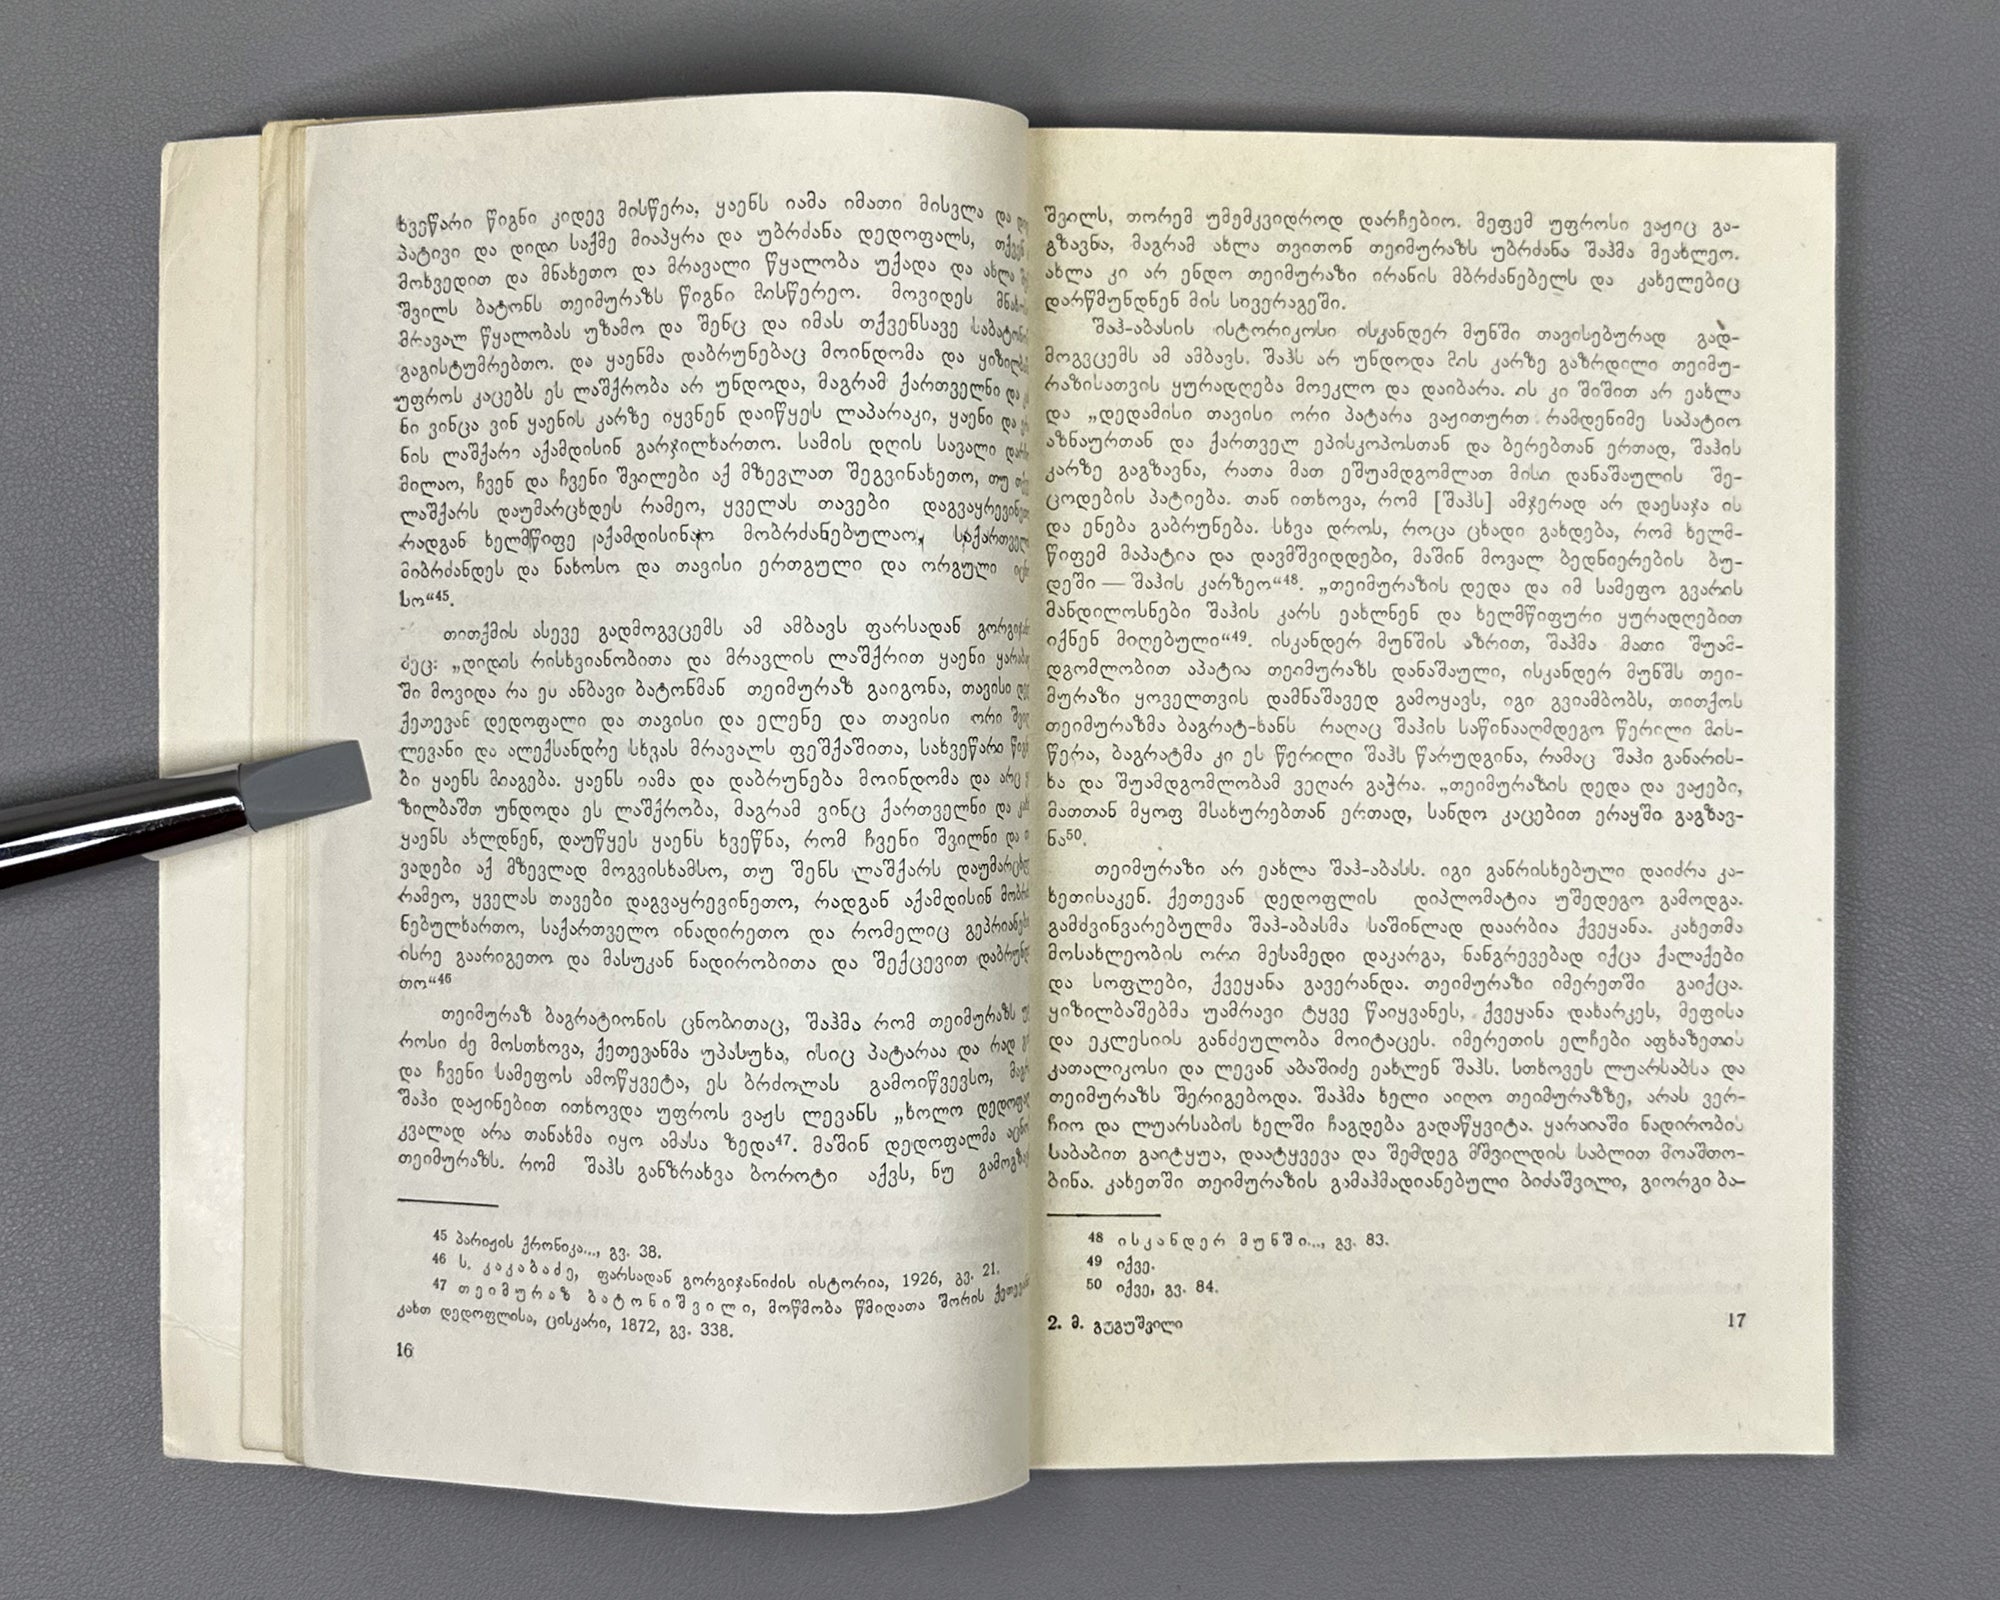 ხვეწარი წიგნი კიდევ მისწერა, ყაენს იამა იმათი მისვლა და
პატივი და დიდი საქმე მიაპყრა და უბრძანა დედოფალს, თქვენ
მოხვედით და მნახეთო და მრავალი წყალობა უქადა და ახლა
შვილს ბატონს თეიმურაზს წიგნი მისწერეო. მოვიდეს
მრავალ წყალობას უზამო და შენც და იმას თქვენსავე
გაგისტუმრებთო. და ყაენმა დაბრუნებაც მოინდომა და
უფროს კაცებს ეს ლაშქრობა არ უნდოდა, მაგრამ ქართველნი და
ნი ვინცა ვინ ყაენის კარზე იყვნენ დაიწყეს ლაპარაკი, ყაენი და
ნის ლაშქარი აქამდისინ გარჯილხართო. სამის დღის სავალი
მილაო, ჩვენ და ჩვენი შვილები აქ მზევლათ შეგვინახეთო, თუ
ლაშქარს დაუმარცხდეს რამეო, ყველას თავები
რადგან ხელმწიფე აქამდისინაო მობრძანებულაო,
მიბრძანდეს და ნახოსო და თავისი ერთგული და ორგული
სო“45.
თითქმის ასევე გადმოგვცემს ამ ამბავს ფარსადან
ძეც: „დიდის რისხვიანობითა და მრავლის ლაშქრით ყაენი
ში მოვიდა რა ეს ანბავი ბატონმან თეიმურაზ გაიგონა, თავისი
ქეთევან დედოფალი და თავისი და ელენე და თავისი ორი
ლევანი და ალექსანდრე სხვას მრავალს ფეშქაშითა, სახვეწარი
ბი ყაენს მიაგება. ყაენს იამა და დაბრუნება მოინდომა და არც
ზილბაშთ უნდოდა ეს ლაშქრობა, მაგრამ ვინც ქართველნი და
ყაენს ახლდნენ, დაუწყეს ყაენს ხვეწნა, რომ ჩვენი შვილნი და
ვადები აქ მზევლად მოგვისხამსო, თუ შენს ლაშქარს
რამეო, ყველას თავები დაგვაყრევინეთო, რადგან აქამდისინ
ნებულხართო, საქართველო ინადირეთო და რომელიც
ისრე გაარიგეთო და მასუკან ნადირობითა და შექცევით
თო“46
თეიმურაზ ბაგრატიონის ცნობითაც, შაჰმა რომ თეიმურაზს
როსი ძე მოსთხოვა, ქეთევანმა უპასუხა, ისიც პატარაა და რად
და ჩვენი სამეფოს ამოწყვეტა, ეს ბრძოლას გამოიწვევსო,
შაჰი დაჟინებით ითხოვდა უფროს ვაჟს ლევანს „ხოლო
კვალად არა თანახმა იყო ამასა ზედა47. მაშინ დედოფალმა
თეიმურაზს. რომ შაჰს განზრახვა ბოროტი აქვს, ნუ
45 პარიჟის ქრონიკა..., გვ. 38.
46 ს. კაკაბაძე, ფარსადან გორგიჯანიძის ისტორია, 1926, გვ. 21.
47 თეიმურაზ ბატონიშვილი, მოწმობა წმიდათა შორის
კახთ დედოფლისა, ცისკარი, 1872, გვ. 338.
16
შვილს, თორემ უმემკვიდროდ დარჩებიო. მეფემ უფროსი ვაჟიც გა-
გზავნა, მაგრამ ახლა თვითონ თეიმურაზს უბრძანა შაჰმა მეახლეო.
ახლა კი არ ენდო თეიმურაზი ირანის მბრძანებელს და კახელებიც
დარწმუნდნენ მის სივერაგეში.
შაჰ-აბასის ისტორიკოსი ისკანდერ მუნში თავისებურად გად-
მოგვცემს ამ ამბავს. შაჰს არ უნდოდა მის კარზე გაზრდილი თეიმუ-
რაზისათვის ყურადღება მოეკლო და დაიბარა. ის კი შიშით არ ეახლა
და „დედამისი თავისი ორი პატარა ვაჟითურთ რამდენიმე საპატიო
აზნაურთან და ქართველ ეპისკოპოსთან და ბერებთან ერთად, შაჰის
კარზე გაგზავნა, რათა მათ ეშუამდგომლათ მისი დანაშაულის შე-
ცოდების პატიება. თან ითხოვა, რომ [შაჰს] ამჯერად არ დაესაჯა ის
და ენება გაბრუნება. სხვა დროს, როცა ცხადი გახდება, რომ ხელმ-
წიფემ მაპატია და დავმშვიდდები, მაშინ მოვალ ბედნიერების ბუ-
დეში — შაჰის კარზეო“48. „თეიმურაზის დედა და იმ სამეფო გვარის
მანდილოსნები შაჰის კარს ეახლნენ და ხელმწიფური ყურადღებით
იქნენ მიღებული“49. ისკანდერ მუნშის აზრით, შაჰმა მათი შუამ-
დგომლობით აპატია თეიმურაზს დანაშაული, ისკანდერ მუნშს თეი-
მურაზი ყოველთვის დამნაშავედ გამოყავს, იგი გვიამბობს, თითქოს
თეიმურაზმა ბაგრატ-ხანს რაღაც შაჰის საწინააღმდეგო წერილი მის-
წერა, ბაგრატმა კი ეს წერილი შაჰს წარუდგინა, რამაც შაჰი განარის-
ხა და შუამდგომლობამ ვეღარ გაჭრა. „თეიმურაზის დედა და ვაჟები,
მათთან მყოფ მსახურებთან ერთად, სანდო კაცებით ერაყში გაგზავ-
ნა50.
თეიმურაზი არ ეახლა შაჰ-აბასს. იგი განრისხებული დაიძრა კა-
ხეთისაკენ. ქეთევან დედოფლის დიპლომატია უშედეგო გამოდგა.
გამძვინვარებულმა შაჰ-აბასმა საშინლად დაარბია ქვეყანა. კახეთმა
მოსახლეობის ორი მესამედი დაკარგა, ნანგრევებად იქცა ქალაქები
და სოფლები, ქვეყანა გავერანდა. თეიმურაზი იმერეთში გაიქცა.
ყიზილბაშებმა უამრავი ტყვე წაიყვანეს, ქვეყანა დახარკეს, მეფისა
და ეკლესიის განძეულობა მოიტაცეს. იმერეთის ელჩები აფხაზეთის
კათალიკოსი და ლევან აბაშიძე ეახლენ შაჰს. სთხოვეს ლუარსაბსა და
თეიმურაზს შერიგებოდა. შაჰმა ხელი აიღო თეიმურაზზე, არას ვერ-
ჩიო და ლუარსაბის ხელში ჩაგდება გადაწყვიტა. ყარაიაში ნადირობის
საბაბით გაიტყუა, დაატყვევა და შემდეგ მშვილდის საბლით მოაშთო-
ბინა. კახეთში თეიმურაზის გამაჰმადიანებული ბიძაშვილი, გიორგი ბა-
48 ისკანდერ მუნში..., გვ. 83.
49 იქვე.
50 იქვე, გვ. 84.
2. მ. გუგუშვილი
17